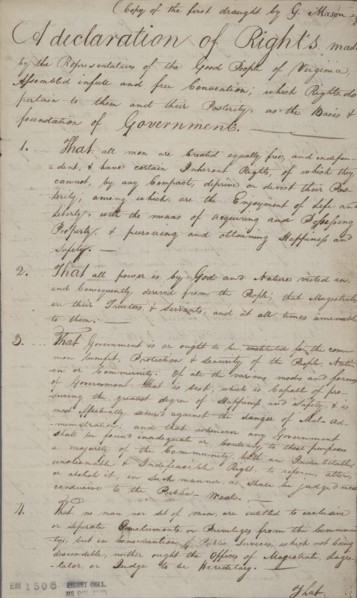 (Copy of the first draught by G. Mason
A declaration of Rights made
by the Representatives of the Good People of Virginia
Assembled in full and free Convention; which Rights do
pertain to them and their Posterity as the Basis &
foundation of Government.
1. That all men are Created equally free, and indepen
dent, & have certain Inherent Rights, of which they
cannot, by any Compact, deprive or divest their Pos
terity; among which are the Enjoyment of Life and
liberty, with the means of acquiring and Possessing
Property, & pursueing and obtaining Happiness and
Safety.
2. That all power is by God and Nature vested in
and Consequently derived from the People; that Magistrates
are their Trustees & Servants, and at all times amenable
to them.
3. That Government is or ought to be instituted for the com
mon benefit, Protection & Security of the People Nati-
on or Community. Of all the various modes and forms
of Government that is best, which is Capable of pro-
ducing the greatest degree of Happiness and Safety, & is
most effectually secured against the danger of Mal-Ad-
ministration; and that whenever any Government
shall be found inadequate or Contrary to these purposes
a majority of the Community hath an Indubitable
unalienable & Indefeasible Right to reform, alter,
or abolish it, in such manner as shall be judged most
conducive to the Public Weal.
4. That no man nor set of men, are entitled to exclusive
or separate Emoluments or Privileges from the Communi
ty, but in Consideration of Public Services; which not being
descendable, neither ought the Offices of Magistrate Legis-
lator, or Judge to be Hereditary.
That
EM 1506